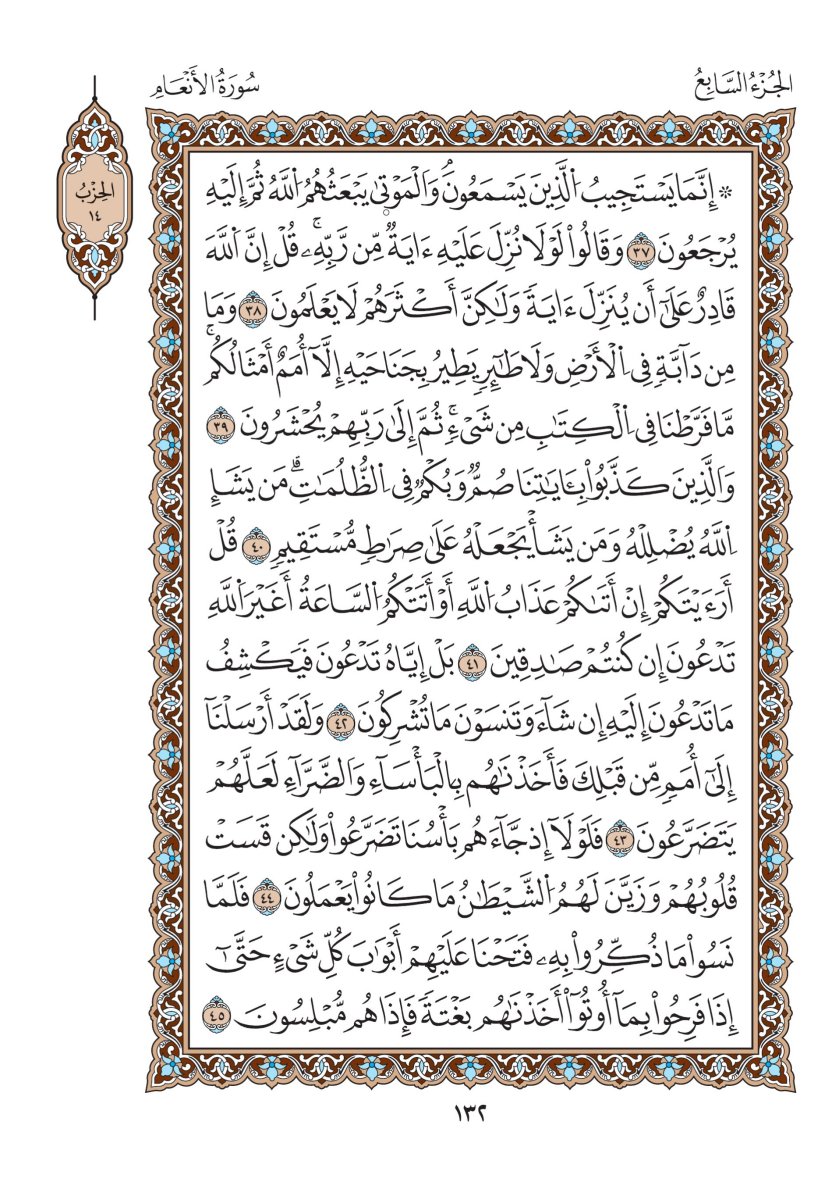 الجُزْءُ السَّابِعُ
سُورَةُ الأَنْعَامِ
الحِزْبُ
١٤
۞ إِنَّمَا يَسْتَجِيبُ اُ۬لَّذِينَ يَسْمَعُونَۘ وَالْمَوْتَىٰ يَبْعَثُهُمُ اُ۬للَّهُ ثُمَّ إِلَيْهِ
يُرْجَعُونَ ٣٧ وَقَالُواْ لَوْلَا نُزِّلَ عَلَيْهِ ءَايَةٌ مِّن رَّبِّهِۦۚ قُلْ إِنَّ اَ۬للَّهَ
قَادِرٌ عَلَىٰٓ أَن يُنَزِّلَ ءَايَةً وَلَٰكِنَّ أَكْثَرَهُمْ لَا يَعْلَمُونَ ٣٨ وَمَا
مِن دَآبَّةٍ فِي اِ۬لْأَرْضِ وَلَا طَٰٓئِرٍ يَطِيرُ بِجَنَاحَيْهِ إِلَّآ أُمَمٌ أَمْثَالُكُمۚ
مَّا فَرَّطْنَا فِي اِ۬لْكِتَٰبِ مِن شَيْءٍۚ ثُمَّ إِلَىٰ رَبِّهِمْ يُحْشَرُونَ ٣٩
وَالَّذِينَ كَذَّبُواْ بِـَٔايَٰتِنَا صُمٌّ وَبُكْمٌ فِي اِ۬لظُّلُمَٰتِۗ مَن يَشَإِ
اِ۬للَّهُ يُضْلِلْهُ وَمَن يَشَأْ يَجْعَلْهُ عَلَىٰ صِرَٰطٍ مُّسْتَقِيمٍ ٤٠ قُلْ
أَرَءَيْتَكُمْ إِنْ أَتَىٰكُمْ عَذَابُ اُ۬للَّهِ أَوْ أَتَتْكُمُ اُ۬لسَّاعَةُ أَغَيْرَ اَ۬للَّهِ
تَدْعُونَ إِن كُنتُمْ صَٰدِقِينَ ٤١ بَلْ إِيَّاهُ تَدْعُونَ فَيَكْشِفُ
مَا تَدْعُونَ إِلَيْهِ إِن شَآءَ وَتَنسَوْنَ مَا تُشْرِكُونَ ٤٢ وَلَقَدْ أَرْسَلْنَآ
إِلَىٰٓ أُمَمٍ مِّن قَبْلِكَ فَأَخَذْنَٰهُم بِالْبَأْسَآءِ وَالضَّرَّآءِ لَعَلَّهُمْ
يَتَضَرَّعُونَ ٤٣ فَلَوْلَآ إِذ جَّآءَهُم بَأْسُنَا تَضَرَّعُواْ وَلَٰكِن قَسَتْ
قُلُوبُهُمْ وَزَيَّنَ لَهُمُ اُ۬لشَّيْطَٰنُ مَا كَانُواْ يَعْمَلُونَ ٤٤ فَلَمَّا
نَسُواْ مَا ذُكِّرُواْ بِهِۦ فَتَحْنَا عَلَيْهِمْ أَبْوَٰبَ كُلِّ شَيْءٍ حَتَّىٰٓ
إِذَا فَرِحُواْ بِمَآ أُوتُوٓاْ أَخَذْنَٰهُم بَغْتَةً فَإِذَا هُم مُّبْلِسُونَ ٤٥
١٣٢